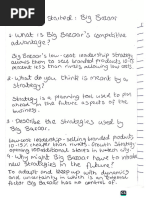 Started: Big Bazaar
1. What is Big Bazaar's competitive
advantage?
Big Bazaar's low-cost leadership strategy
allows them to sell branded products
percent less than rivals
2. What do you think is meant by a
strategy?
Strategy is a planning tool used to plot
ahead in the future aspects of the
business.
3. Describe the strategies used by
Big Bazaar.
leadership - selling branded products
10-15% cheaper than rivals. Growth Strategy
opening additional stores in
4. Why might Big Bazaar have to
new strategies in the future?
To adapt and keep up with dynamics
and uncertainty in environment.
factor Big Bazaar has no control of.